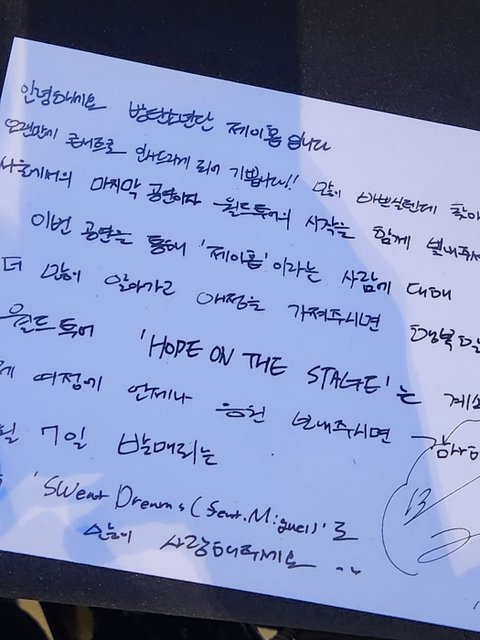 안녕하세요 방탄소년단 제이홉입니다
오랜만에 콘서트로 인사드리게 되어 기쁩니다!! 많이 바쁘실텐데 찾아
서울에서의 마지막 공연이자 월드투어의 시작을 함께 빛내주셔
이번 공연을 통해 '제이홉'이라는 사람에 대해
더 많이 알아가고 애정을 가져주시면 행복
월드투어 'HOPE ON THE STAGE'는 계속
여정에 언제나 응원 보내주시면 감사
월 7일 발매되는
'Sweet Dreams (feat. Miguel)'도
많이 사랑해주세요 ^^